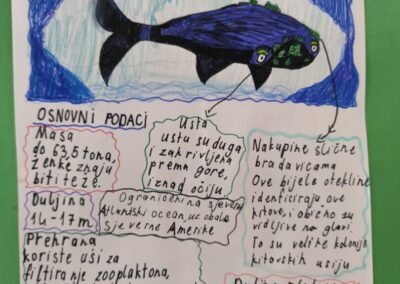 OSNOVNI PODACI
Masa
do 63,5 tona,
ženke znaju
biti teže.
Usta
usta su duga
i zakrivljena
prema gore,
iznad očiju
Nakupine slične
bradavicama
Ove bijele otekline
identificiraju ove
kitove, i obično su
vidljive na glavi.
To su velike kolonije
kitovskih ušiju
Duljina
14-17m
Ograničen na sjeverni
Atlantski ocean, uz obalu
Sjeverne Amerike
Prehrana
koriste uši za
filtriranje zooplaktona,